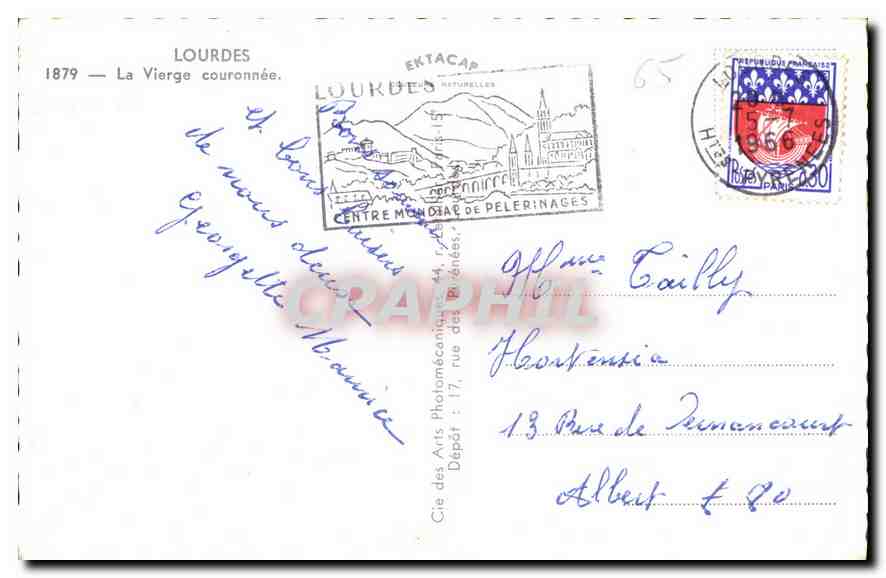 LOURDES
1879 — La Vierge couronnée.
EKTACAP
LOURDES
NATURELLES
CENTRE MONDIAL DE PELERINAGES
65
REPUBLIQUE FRANÇAISE
5-7
1966
Htes PYRENEES
Postes 0,30
PARIS
Bons
et bons baisers
de nous deux
Georgette Maurice
Cie des Arts Photomécaniques 44, r.
Dépôt : 17, rue des Pyrénées,
CPAPHIL
Mme Tailly
Hortensia
13 Rue de
Albert 80